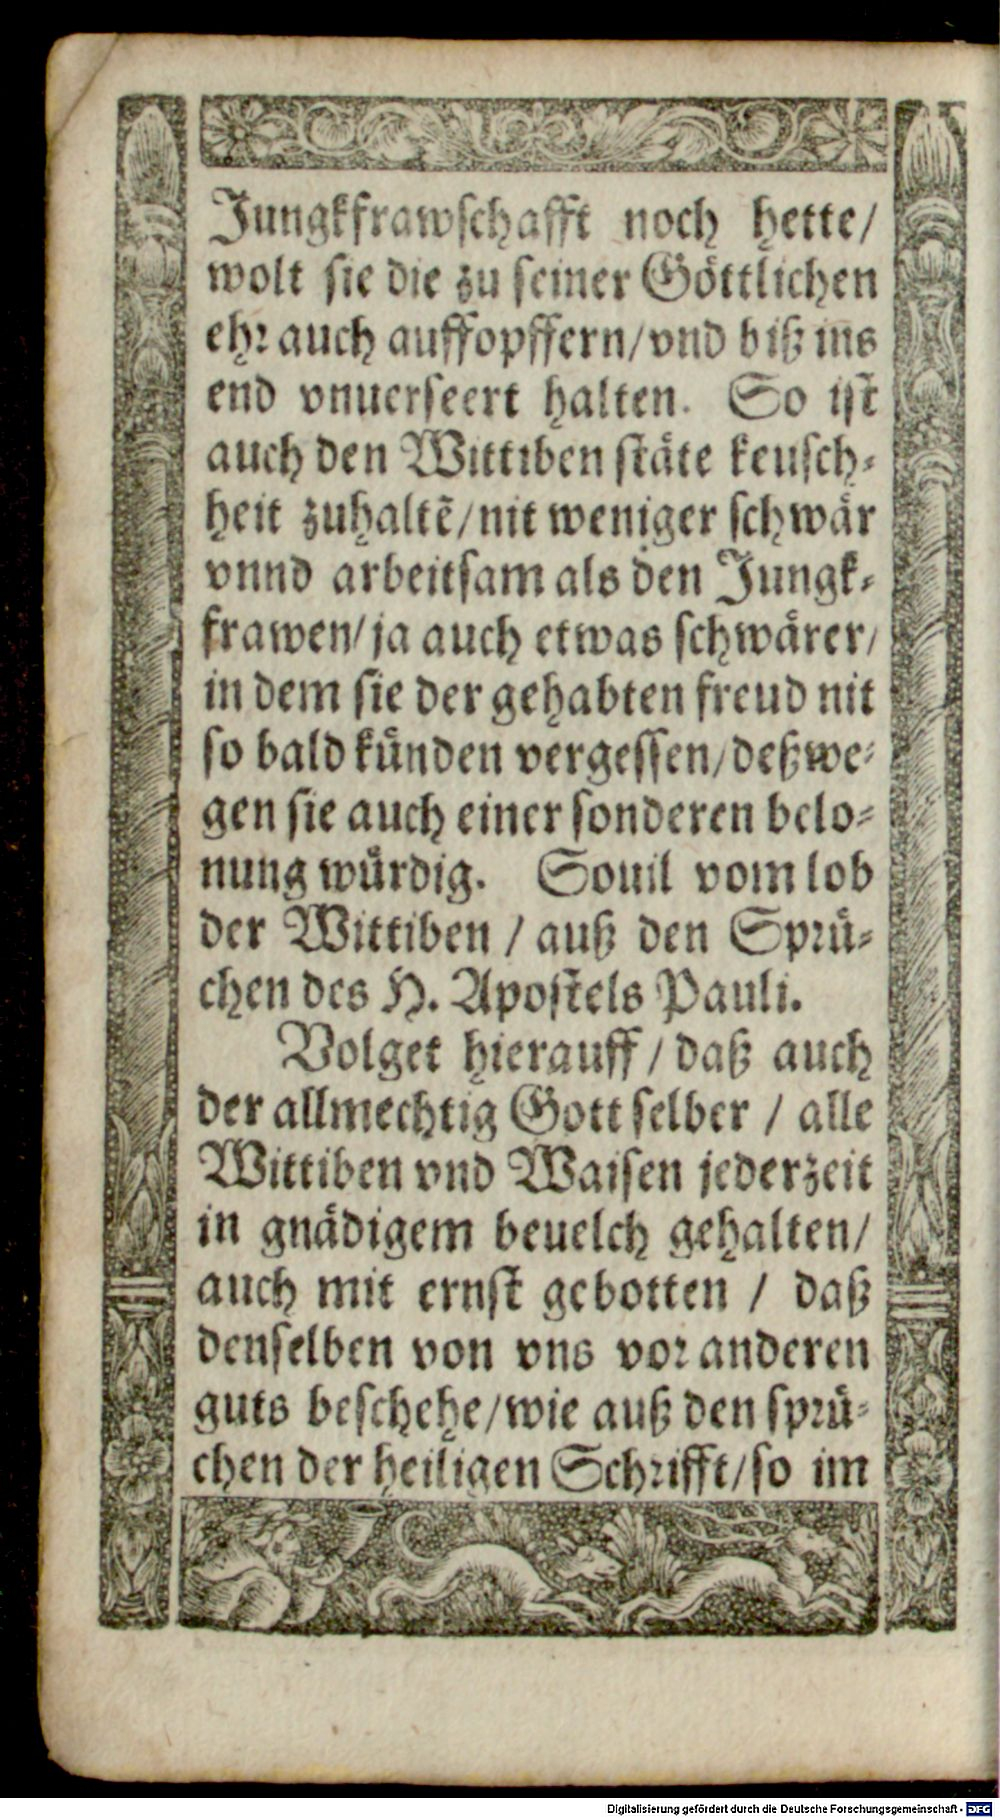 Jungkfrawschafft noch hette/
wolt sie die zu seiner Göttlichen
ehr auch auffopffern/vnd biß ins
end vnuerseert halten. So ist
auch den Wittiben stäte keusch-
heit zuhaltẽ/nit weniger schwär
vnnd arbeitsam als den Jungk-
frawen/ja auch etwas schwärer/
in dem sie der gehabten freud nit
so bald künden vergessen/deßwe-
gen sie auch einer sonderen belo-
nung würdig. Souil vom lob
der Wittiben / auß den Sprü-
chen des H. Apostels Pauli.
Volget hierauff / daß auch
der allmechtig Gott selber / alle
Wittiben vnd Waisen jederzeit
in gnädigem beuelch gehalten/
auch mit ernst gebotten / daß
denselben von vns vor anderen
guts beschehe/wie auß den sprü-
chen der heiligen Schrifft/so im
Digitalisierung gefördert durch die Deutsche Forschungsgemeinschaft - DFG